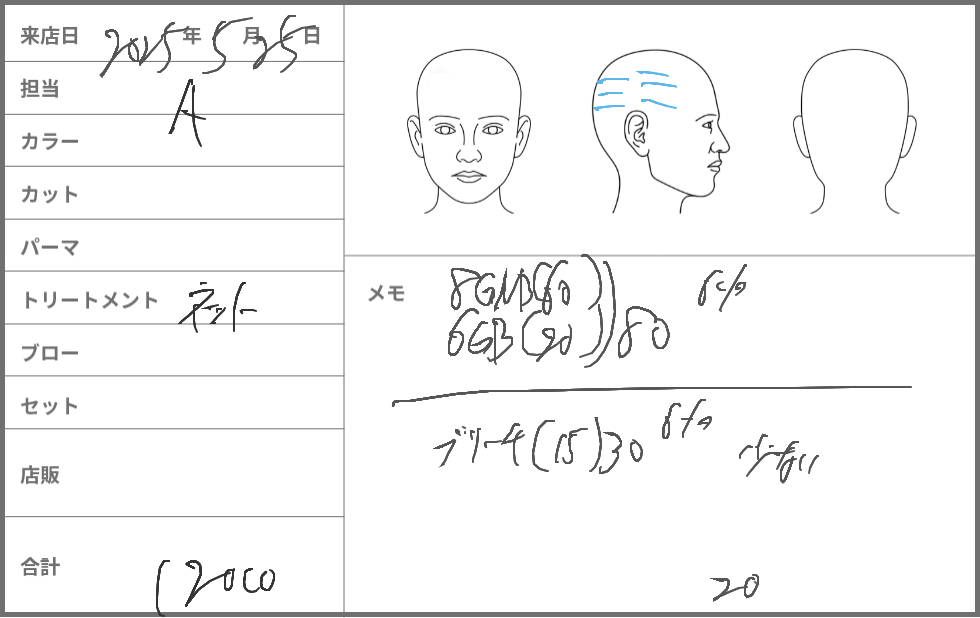 来店日 2025年5月25日
担当 A
カラー
カット
パーマ
トリートメント ネット
ブロー
セット
店販
合計 12000
メモ
8GNB(60)
6GB(20) 80
ブリーチ(15)30
少ない
20